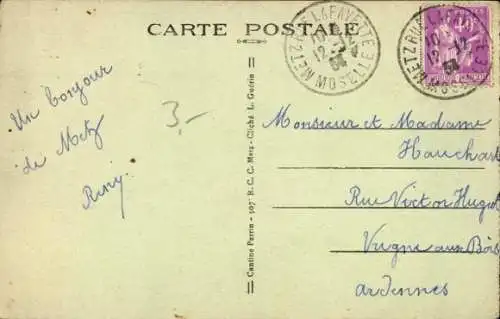 CARTE POSTALE
METZ RUE LAFAYETTE
12
MOSELLE
METZ RUE LAFAYETTE
12 - 12
MOSELLE
40
Un bonjour
de Metz
3,-
Cantine Perrin - 107e R. C. C. Metz - Cliché L. Guérin
Monsieur et Madame
Hauchart
Rue Victor Hugot
Vrigne aux Bois
Ardennes